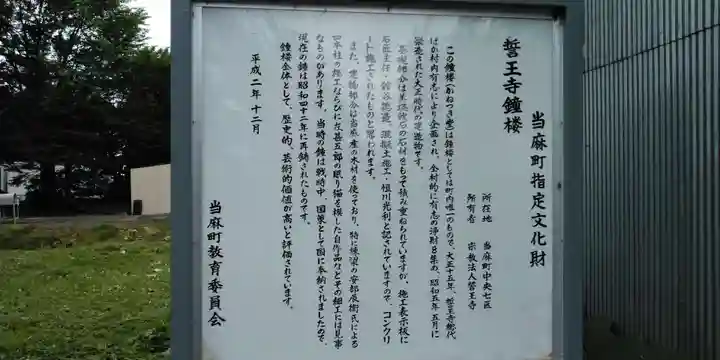 当麻町指定文化財
誓王寺鐘楼
所在地 当麻町中央七区
所有者 宗教法人誓王寺
この鐘楼(かねつき堂)は鐘楼としては町内唯一のもので、大正十五年、誓王寺総代
ほか村内有志により企画され、全村的に有志の浄財を集め、昭和五年五月に
築造された大正時代の建造物です。
基礎部分は美瑛軟石の石材をもって積み重ねられていますが、施工表示板に
石匠主任・ 混凝土施工・恒川光利と記されていますので、コンクリ
ート施工されたものと思われます。
また、建物部分は当麻産の木材を使っており、特に棟梁の安部辰樹氏による
四本柱の施工ならびに左甚五郎の眠り猫を模した自作品などその細工には見事
なものがあります。当時の鐘は戦時中、国策として国に奉納されましたので、
現在の鐘は昭和四十二年に再鋳されたものです。
鐘楼全体として、歴史的、芸術的価値が高いと評価されています。
平成二年十二月
当麻町教育委員会